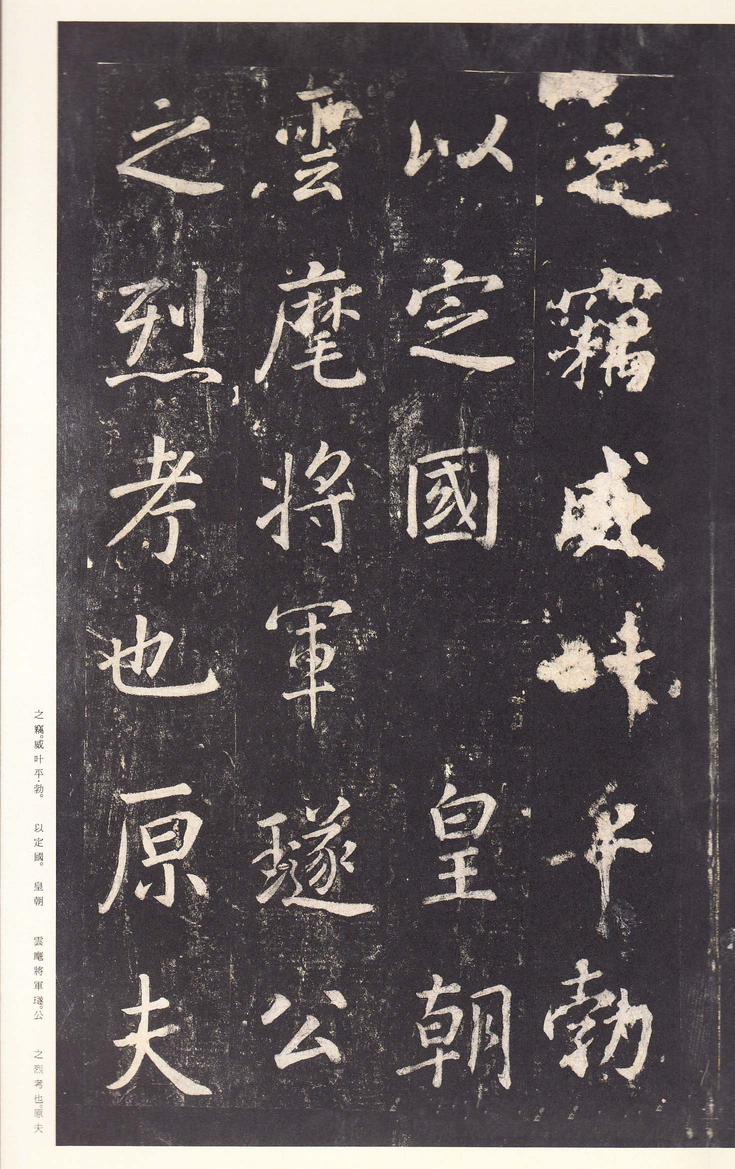 之竊威叶平勃
以定國　皇朝
雲麾將軍璲公
之烈考也原夫
之竊。威叶平・勃。　以定國。皇朝　雲麾將軍璲。公　之烈考也。原夫